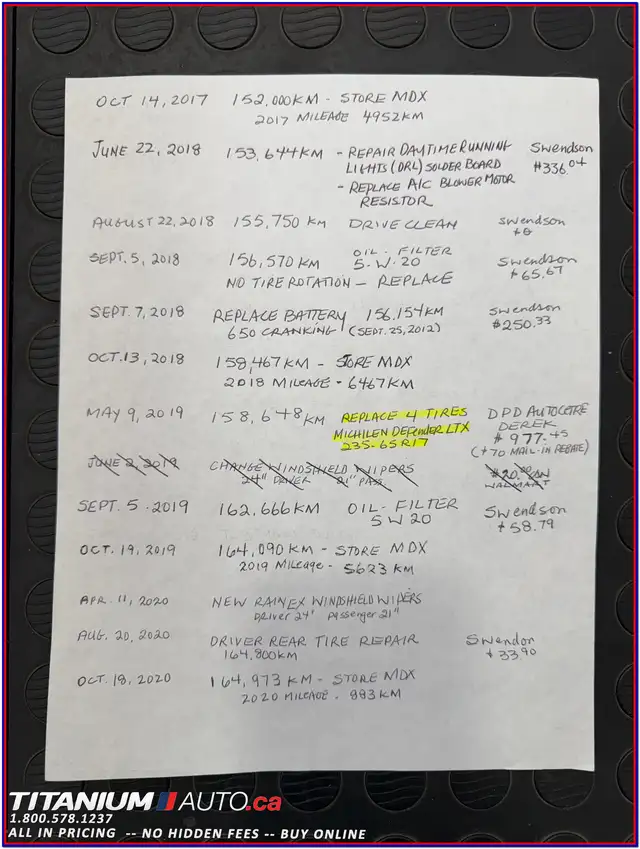 OCT 14, 2017 152,000KM - STORE MDX
2017 MILEAGE 4952KM
JUNE 22, 2018 153,644KM - REPAIR DAYTIME RUNNING Swendson
LIGHTS (DRL) SOLDER BOARD $336.04
- REPLACE A/C BLOWER MOTOR
RESISTOR
AUGUST 22, 2018 155,750 KM DRIVE CLEAN Swendson
SEPT. 5, 2018 156,570KM OIL - FILTER Swendson
5-W-20 $65.67
NO TIRE ROTATION - REPLACE
SEPT. 7, 2018 REPLACE BATTERY 156,154KM Swendson
650 CRANKING (SEPT. 25, 2012) $250.33
OCT. 13, 2018 158,467KM - STORE MDX
2018 MILEAGE - 6467KM
MAY 9, 2019 158,648KM REPLACE 4 TIRES DPD AUTOCETRE
MICHILEN DEFENDER LTX DEREK
235-65R17 $977.45
($70 MAIL-IN REBATE)
JUNE 2, 2019 CHANGE WINDSHIELD WIPERS $20.00
24" DRIVER 21" PASS. WALMART
SEPT. 5. 2019 162,666KM OIL - FILTER Swendson
5W20 $58.79
OCT. 19, 2019 164,090KM - STORE MDX
2019 MILEAGE - 5623 KM
APR. 11, 2020 NEW RAINEX WINDSHIELD WIPERS
DRIVER 24" PASSENGER 21"
AUG. 20, 2020 DRIVER REAR TIRE REPAIR Swendon
164,800KM $33.90
OCT. 18, 2020 164,973 KM - STORE MDX
2020 MILEAGE - 883KM
TITANIUM AUTO.ca
1.800.578.1237
ALL IN PRICING -- NO HIDDEN FEES -- BUY ONLINE